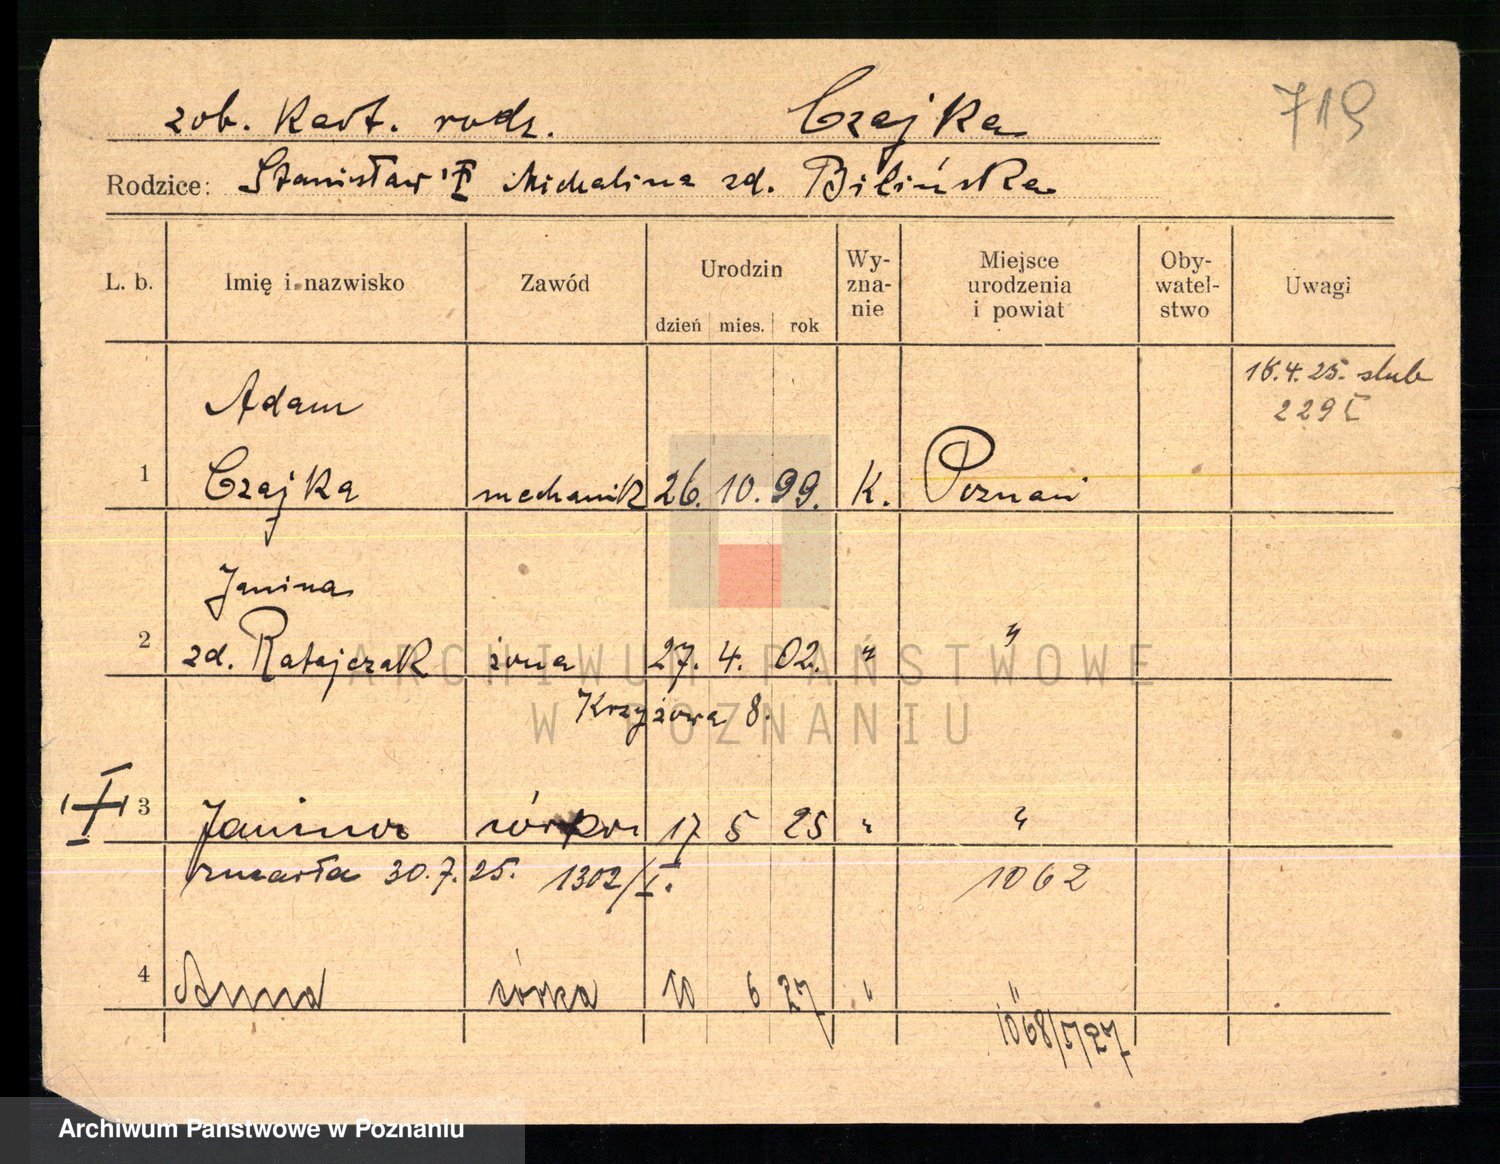 zob. kart. rodz. Czajka
719
Rodzice: Stanisław Michalina zd. Bilińska
L. b. Imię i nazwisko Zawód Urodzin dzień mies. rok Wy-zna-nie Miejsce urodzenia i powiat Oby-watel-stwo Uwagi
16.4.25. ślub
229 I
Adam
1 Czajka mechanik 26. 10. 99. K. Poznań
Janina
2 zd. Ratajczak żona 27. 4. 02. " "
Krzyżowa 8.
3 Janina córka 17 5 25 " "
zmarła 30.7.25. 1302/I. 1062
4 Anna córka 10 6 27 " "
1068/I/27
ARCHIWUM PAŃSTWOWE
W POZNANIU
Archiwum Państwowe w Poznaniu